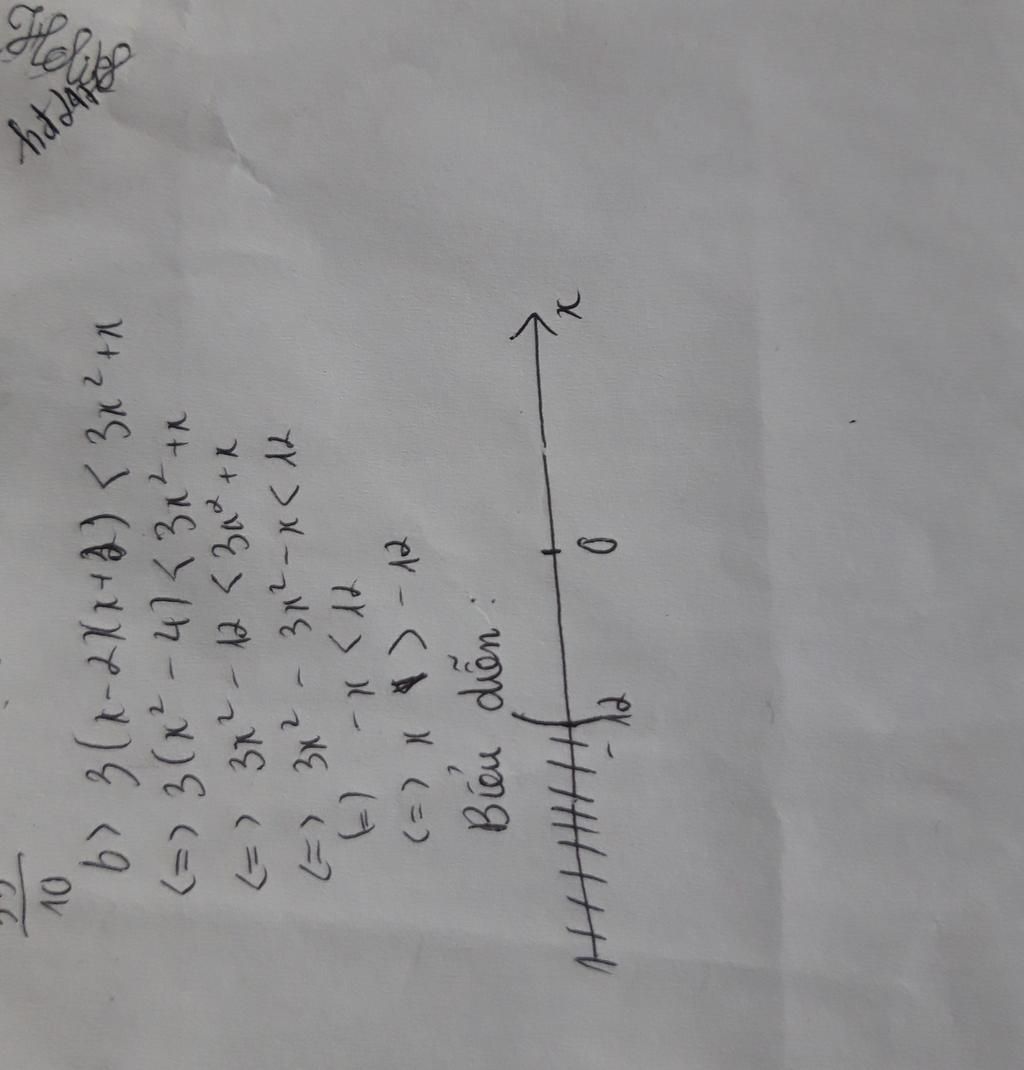 Helios
10
b> 3(x-2)(x+2) < 3x² + x
<=> 3(x² - 4) < 3x² + x
<=> 3x² - 12 < 3x² + x
<=> 3x² - 3x² - x < 12
(=) -x < 12
<=> x > -12
Biểu diễn:
-12 0 x